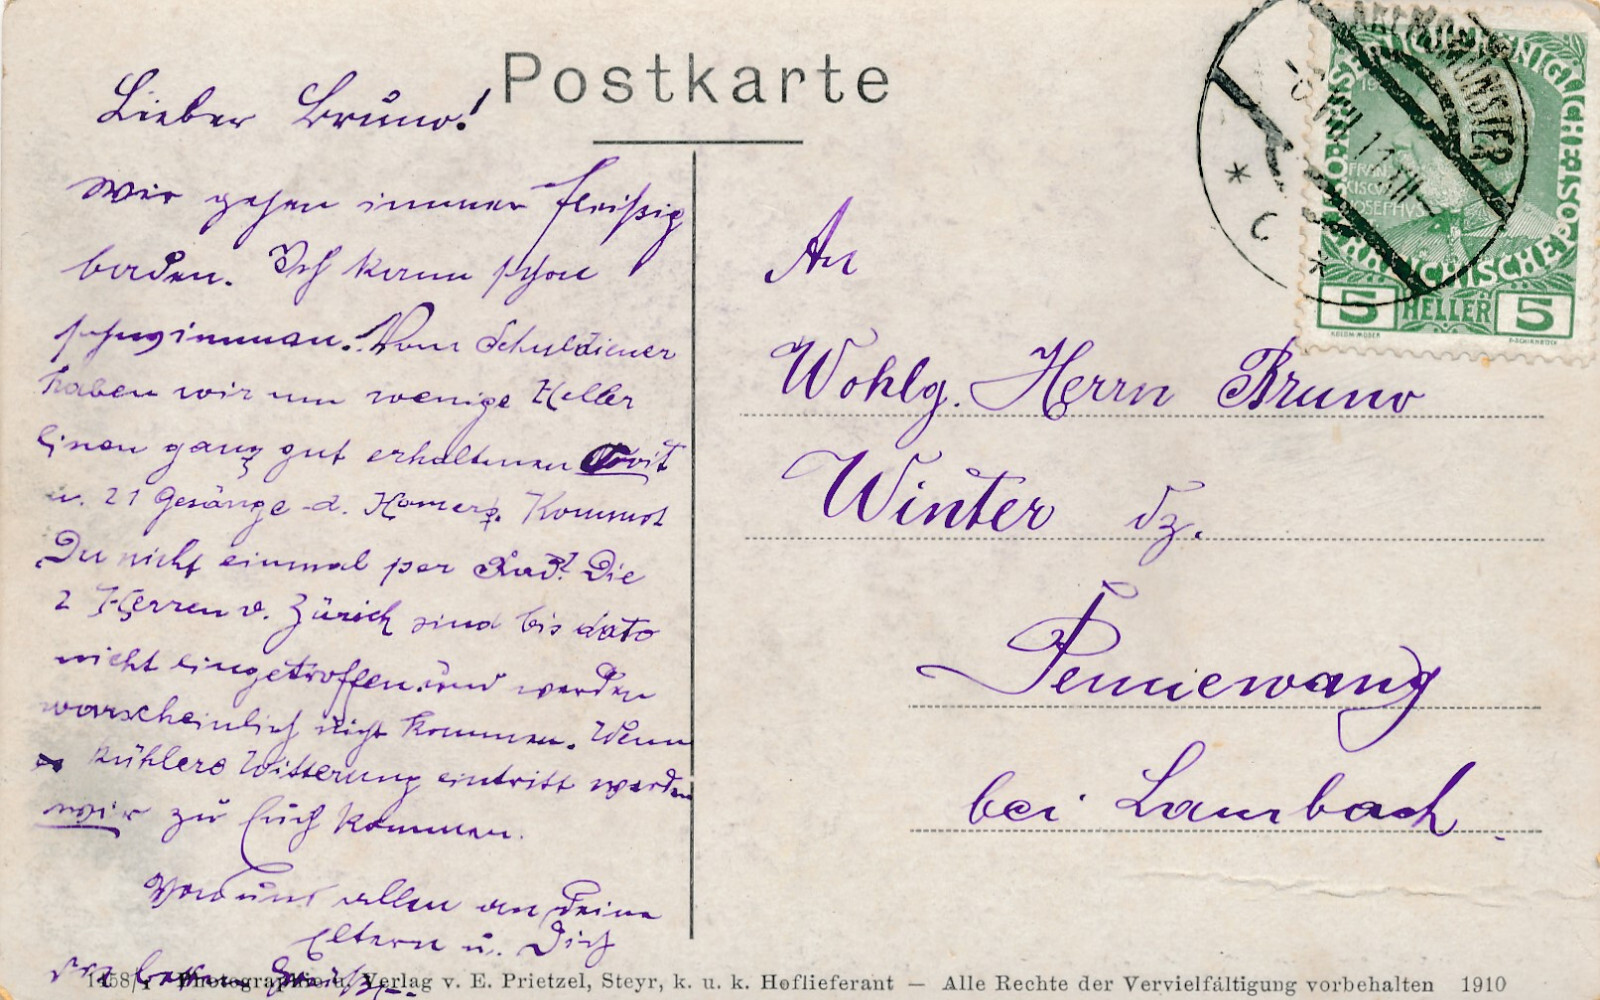 Postkarte
Lieber Bruno!
Wir gehen immer fleißig
baden. Ich kann schon
schwimmen. Vom Schuldiener
haben wir um wenige Heller
einen ganz gut erhaltenen
u. 21 Gesänge d. Homers. Kommst
Du nicht einmal per Rad? Die
2 Herren v. Zürich sind bis dato
nicht eingetroffen und werden
warscheinlich nicht kommen. Wenn
kühlere Witterung eintritt werden
wir zu Euch kommen.
Von uns allen an Deine
Eltern u. Dich
die besten Grüße
An
Wohlg. Herrn Bruno
Winter dz.
Pennewang
bei Lambach.
KREMSMÜNSTER
FRAN
CISCVS
IOSEPHVS
5 HELLER 5
1458/1 Photographie u. Verlag v. E. Prietzel, Steyr, k. u. k. Hoflieferant — Alle Rechte der Vervielfältigung vorbehalten 1910